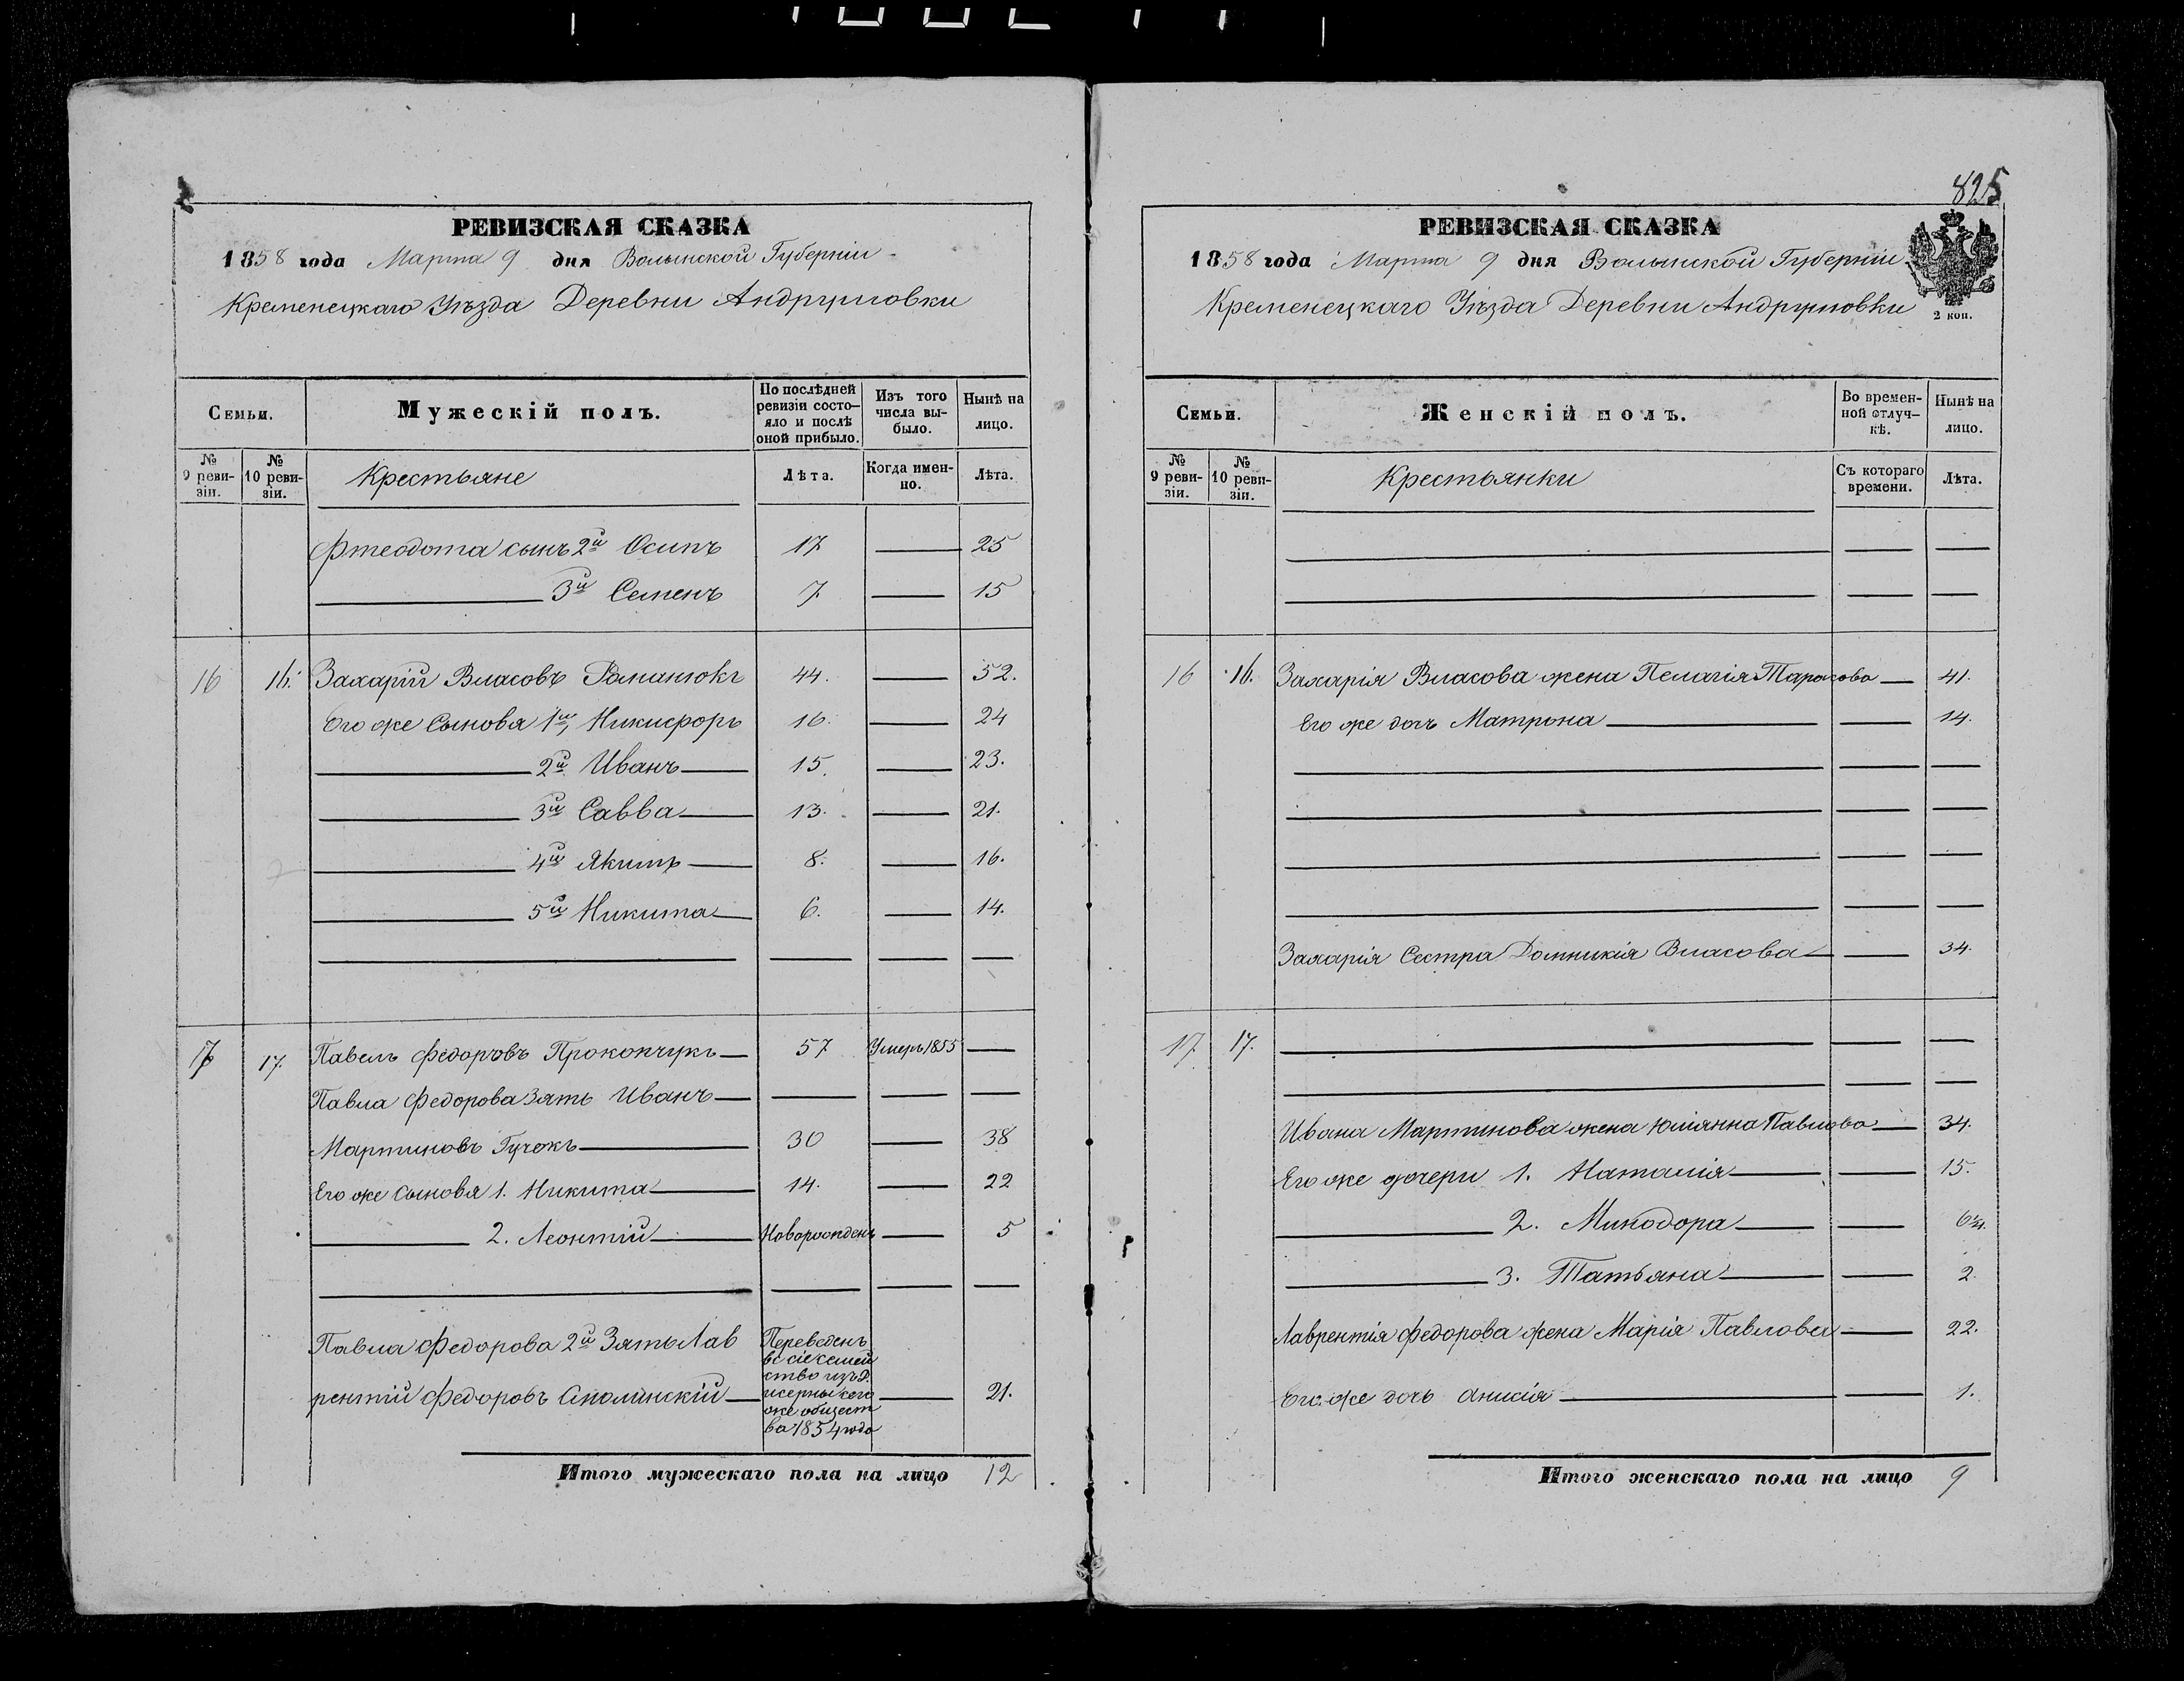 825
РЕВИЗСКАЯ СКАЗКА
1858 года Марта 9 дня Волынской Губерніи
Кременецкаго Уѣзда Деревни Андруповки
Семьи.
Мужескій полъ.
По послѣдней ревизіи состо-яло и послѣ оной прибыло.
Изъ того числа вы-было.
Нынѣ на лицо.
№ 9 реви-зіи.
№ 10 реви-зіи.
Крестьяне
Лѣта.
Когда имен-но.
Лѣта.
Фтеодота сынъ 2й Осипъ 17 — 25
3й Семенъ 7 — 15
16 16. Захарій Власовъ Романюкъ 44. — 52.
Его же Сыновя 1й, Никифоръ 16. — 24
2й Иванъ 15. — 23.
3й Савва 13. — 21.
4й Якимъ 8. — 16.
5й Никита 6. — 14.
17 17. Павелъ Федоровъ Прокопчукъ 57 Умеръ 1855 —
Павла Федорова зять Иванъ — — —
Мартиновъ Гучокъ 30 — 38
Его же сыновя 1. Никита 14. — 22
2. Леонтій Новорожденъ — 5
Павла Федорова 2й Зять Лав
рентій Федоровъ Смолинскій — 21.
Переведенъ
въ сіе семей
ство изъ
же общест
ва 1854 года
Итого мужескаго пола на лицо 12
РЕВИЗСКАЯ СКАЗКА
1858 года Марта 9 дня Волынской Губерніи
Кременецкаго Уѣзда Деревни Андруповки
2 коп.
Семьи.
Женскій полъ.
Во времен-ной отлуч-кѣ.
Нынѣ на лицо.
№ 9 реви-зіи.
№ 10 реви-зіи.
Крестьянки
Съ котораго времени.
Лѣта.
16 16. Захарія Власова жена Пелагія Тарасова — 41.
Его же дочь Матрона — 14.
Захарія Сестра Домникія Власова — 34.
17 17.
Ивана Мартинова жена Юліянна Павлова — 34.
Его же дочери 1. Наталія — 15.
2. Минодора —
3. Татьяна — 2.
Лаврентія Федорова жена Марія Павлова — 22.
Его же дочь Анисія — 1.
Итого женскаго пола на лицо 9